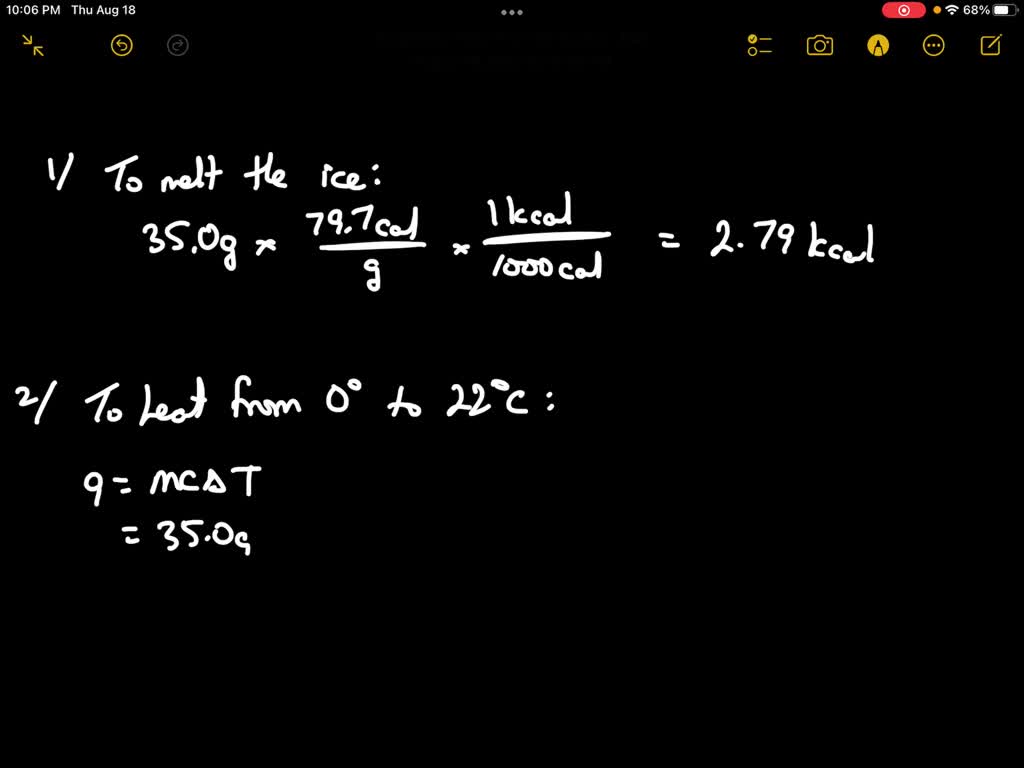 10:06 PM Thu Aug 18
68%
1/ To melt the ice:
35.0g × 79.7cal/g × 1kcal/1000cal = 2.79 kcal
2/ To heat from 0° to 22°C:
q = mcΔT
= 35.0g